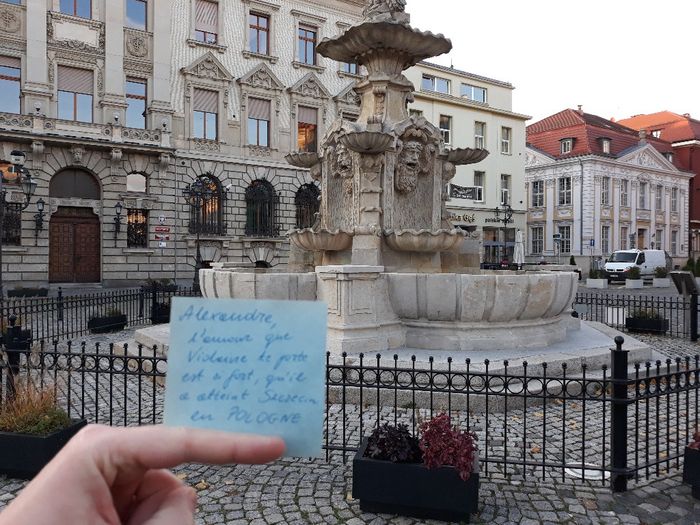 Alexandre,
l'amour que
Violaine te porte
est si fort, qu'il
a atteint Szczecin
en POLOGNE